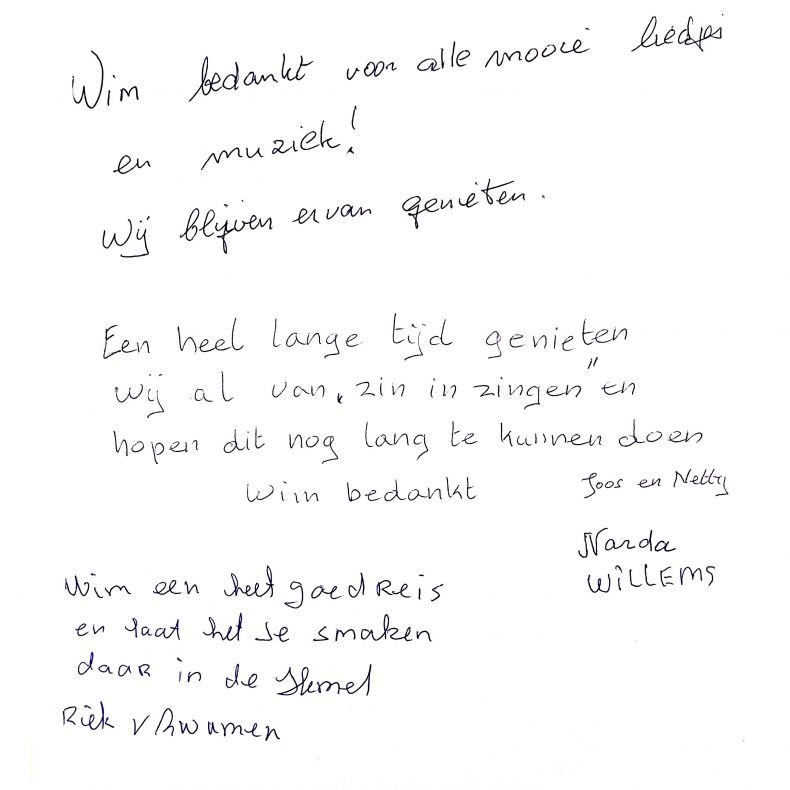 Wim bedankt voor alle mooie liedjes
en muziek!
Wij blijven ervan genieten.
Een heel lange tijd genieten
wij al van „zin in zingen" en
hopen dit nog lang te kunnen doen
Wim bedankt
Joos en Netty
Narda
WILLEMS
Wim een heel goed Reis
en laat het Je smaken
daar in de Hemel
Riek